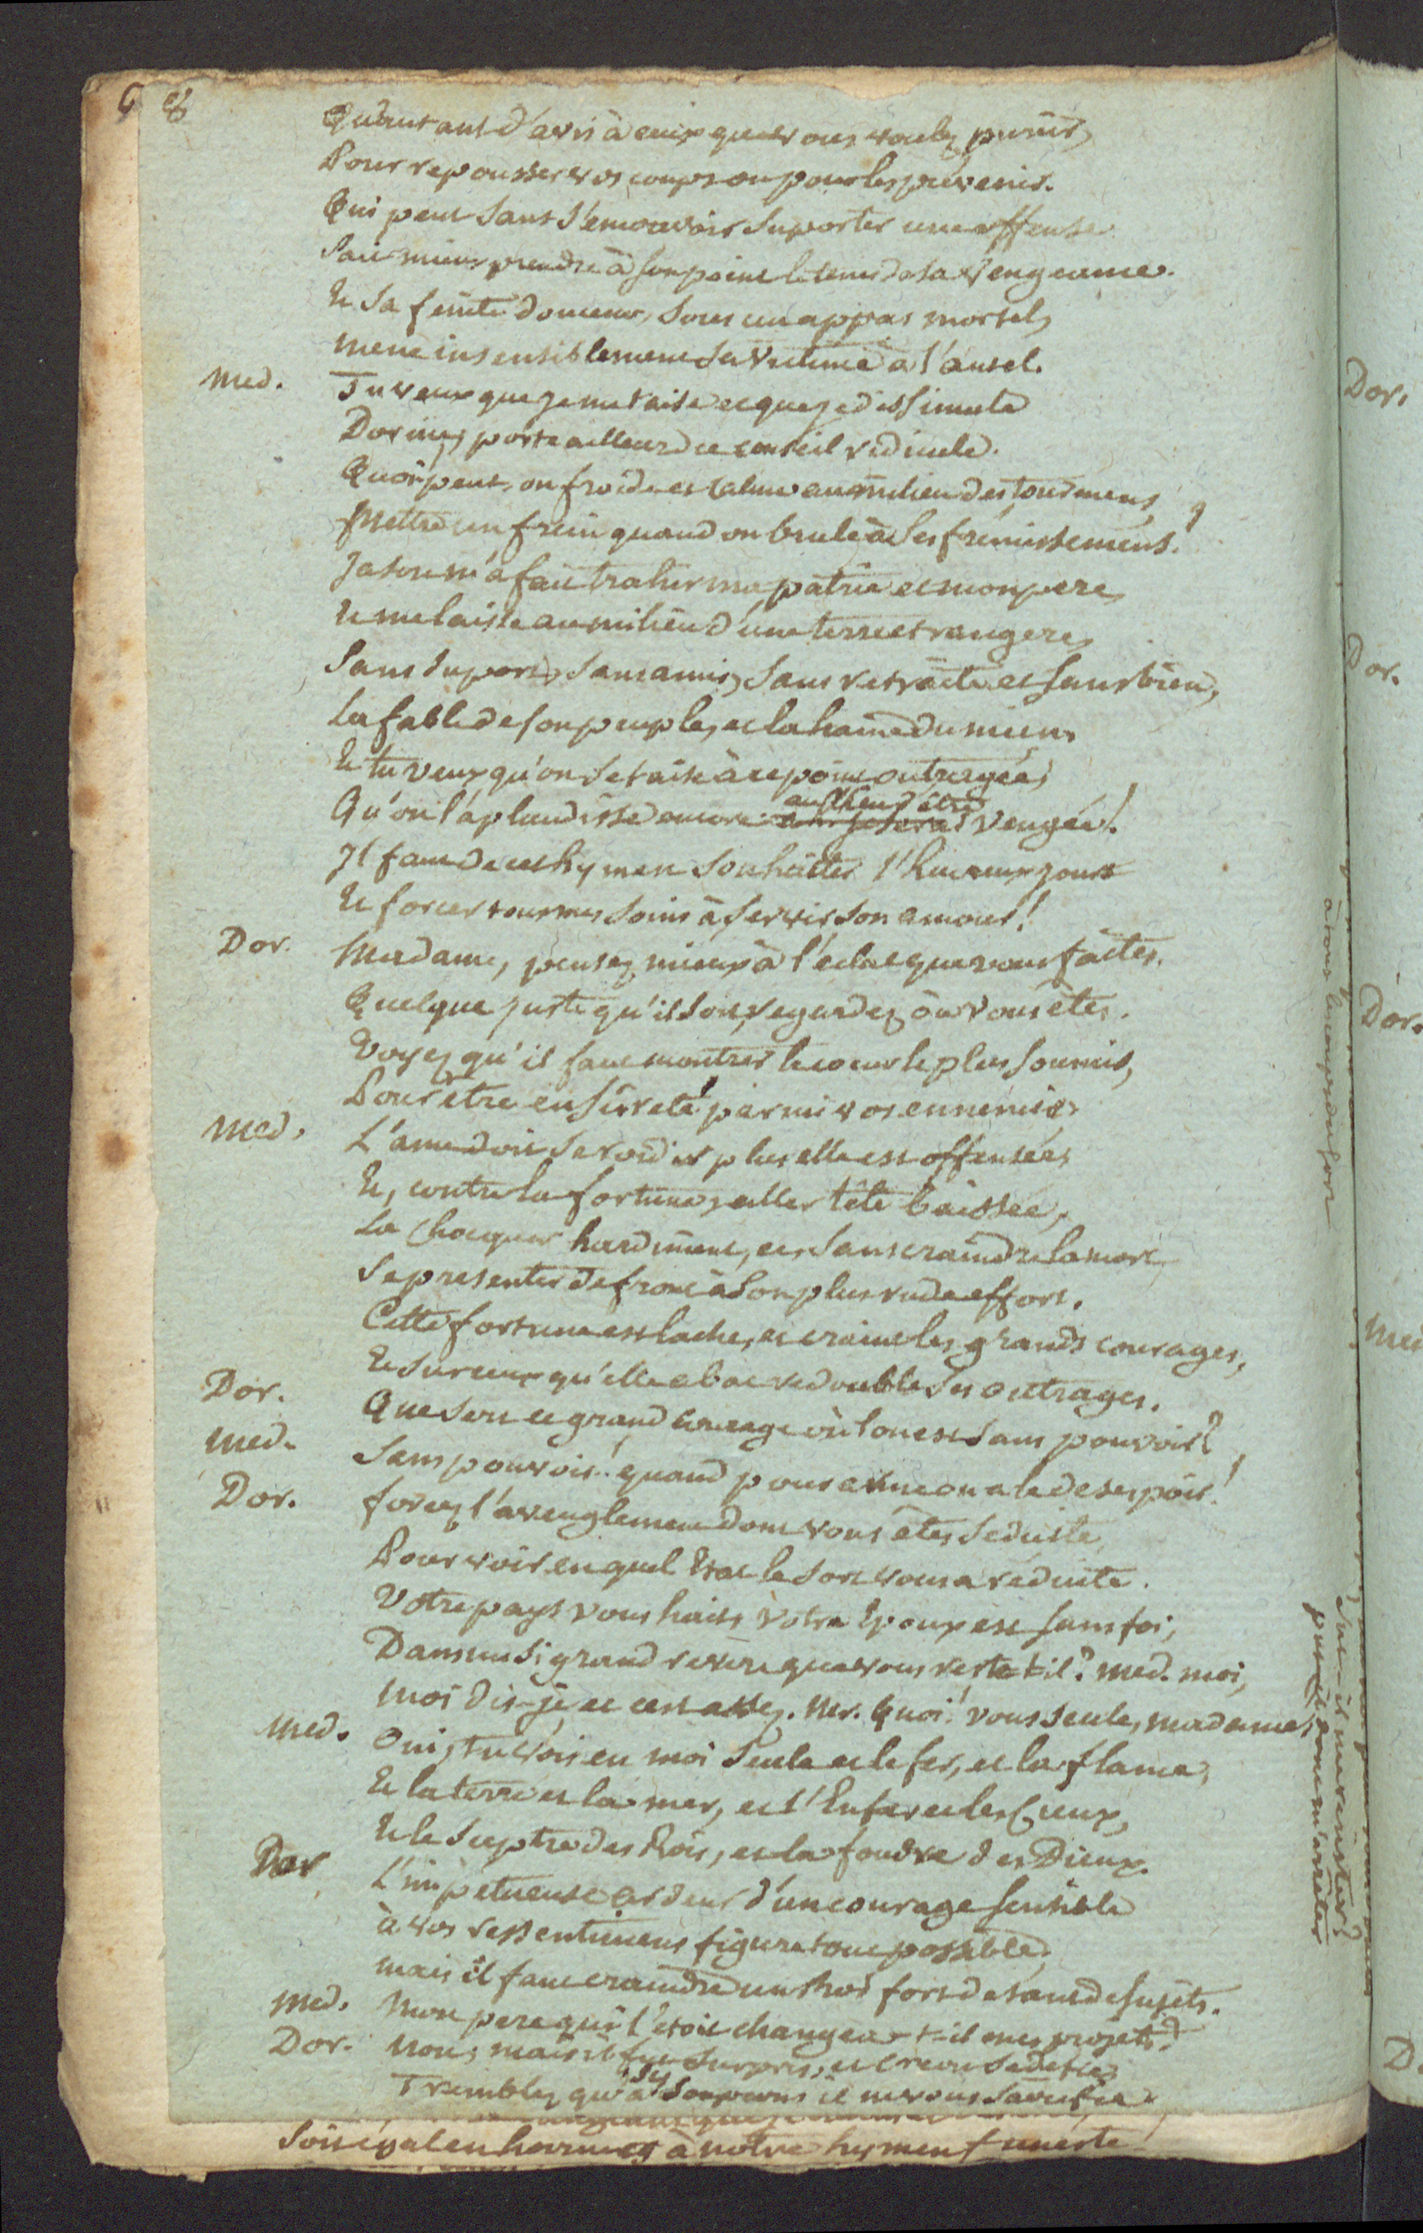 8
Qu'autant d'avis à ceux que vous voulez punir,
Pour repousser vos coups ou pour les prévenir.
Qui peut sans s'emouvoir suporter une offense
Sait mieux prendre à son point le tems de sa vengeance.
Et sa feinte douceur, sous un appas mortel,
mene insensiblement sa victime à l'autel.
Med. Tu veux que je me taise et que je dissimule
Dorine, porte ailleurs ce conseil ridicule.
Quoi peut-on froide et calme au milieu des tourmens,
Mettre un frein quand on brule à ses frémissemens?
Jason m'a fait trahir ma patrie et mon pere,
Et me laisse au milieu d'une terre etrangere,
Sans suport, sans amis, sans retraite et sans bien,
La fable de son peuple, et la haine du mien.
Et tu veux qu'on se taise à ce point outragée,
Qu'on l'aplaudisse encore au lieu d'être vengée!
Il faut de cet hymen souhaiter l'heureux jour
Et forcer tous mes soins à servir son amour!
Dor. Madame, pensez mieux à l'éclat que vous faites.
Quelque juste qu'il soit, regardez où vous êtes.
Voyez qu'il faut montrer le coeur le plus soumis,
Pour être en sûreté parmi vos ennemis.
Med. L'ame doit se roidir plus elle est offensée,
Et, contre la fortune, aller tête baissée,
La choquer hardiment, et, sans craindre la mort,
Se presenter de front à son plus rude effort.
Cette fortune est lache, et craint les grands courages,
Et sur ceux qu'elle abat redouble ses outrages.
Dor. Que sert ce grand courage où l'on est sans pouvoir?
Med. Sans pouvoir! quand pour arme on a le desespoir!
Dor. forcez l'aveuglement dont vous êtes seduite,
Pour voir en quel Etat le sort vous a réduite.
Votre pays vous hait, votre Epoux est sans foi,
Dans un si grand revers que vous reste-t-il? Med. moi,
moi dis-je et c'est assez. Ner. Quoi! vous seule, madame,
Med. Oui, tu vois en moi seule et le fer, et la flame,
Et la terre et la mer, et l'Enfer et les Cieux,
Et le Sceptre des Rois, et la foudre des Dieux.
Dor L'impétueuse ardeur d'un courage sensible
à vos ressentimens figure tout possible,
mais il faut craindre un Roi fort de tant de sujets.
Med. Mon pere qui l'étoit changea-t-il mes projets?
Dor. Non; mais il fut surpris, et Creon se defie,
Tremblez qu'à ses soupçons il ne vous sacrifie.
Soit egal en horreurs à notre hymen funeste
Dor.
Dor.
Dor.
Med